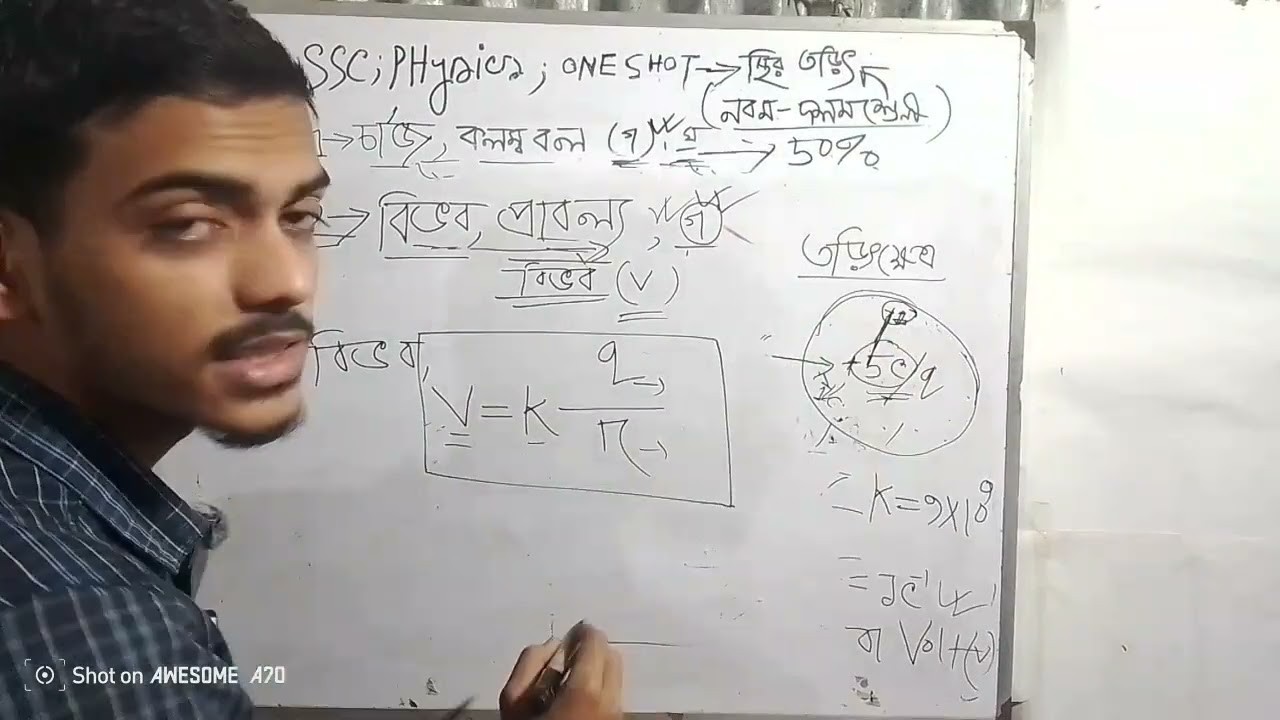 SSC; PHysics; ONE SHOT → স্থির তড়িৎ
(নবম-দশম শ্রেণী)
→ চার্জ, কলম্ব বল (গ), ঘ → 50%
→ বিভব, প্রাবল্য, গ
বিভব (V)
তড়িৎক্ষেত্র
বিভব,
V = k q/r
+5C q
= K = 9×10⁹
= JC⁻¹
বা Volt (V)
Shot on AWESOME A70